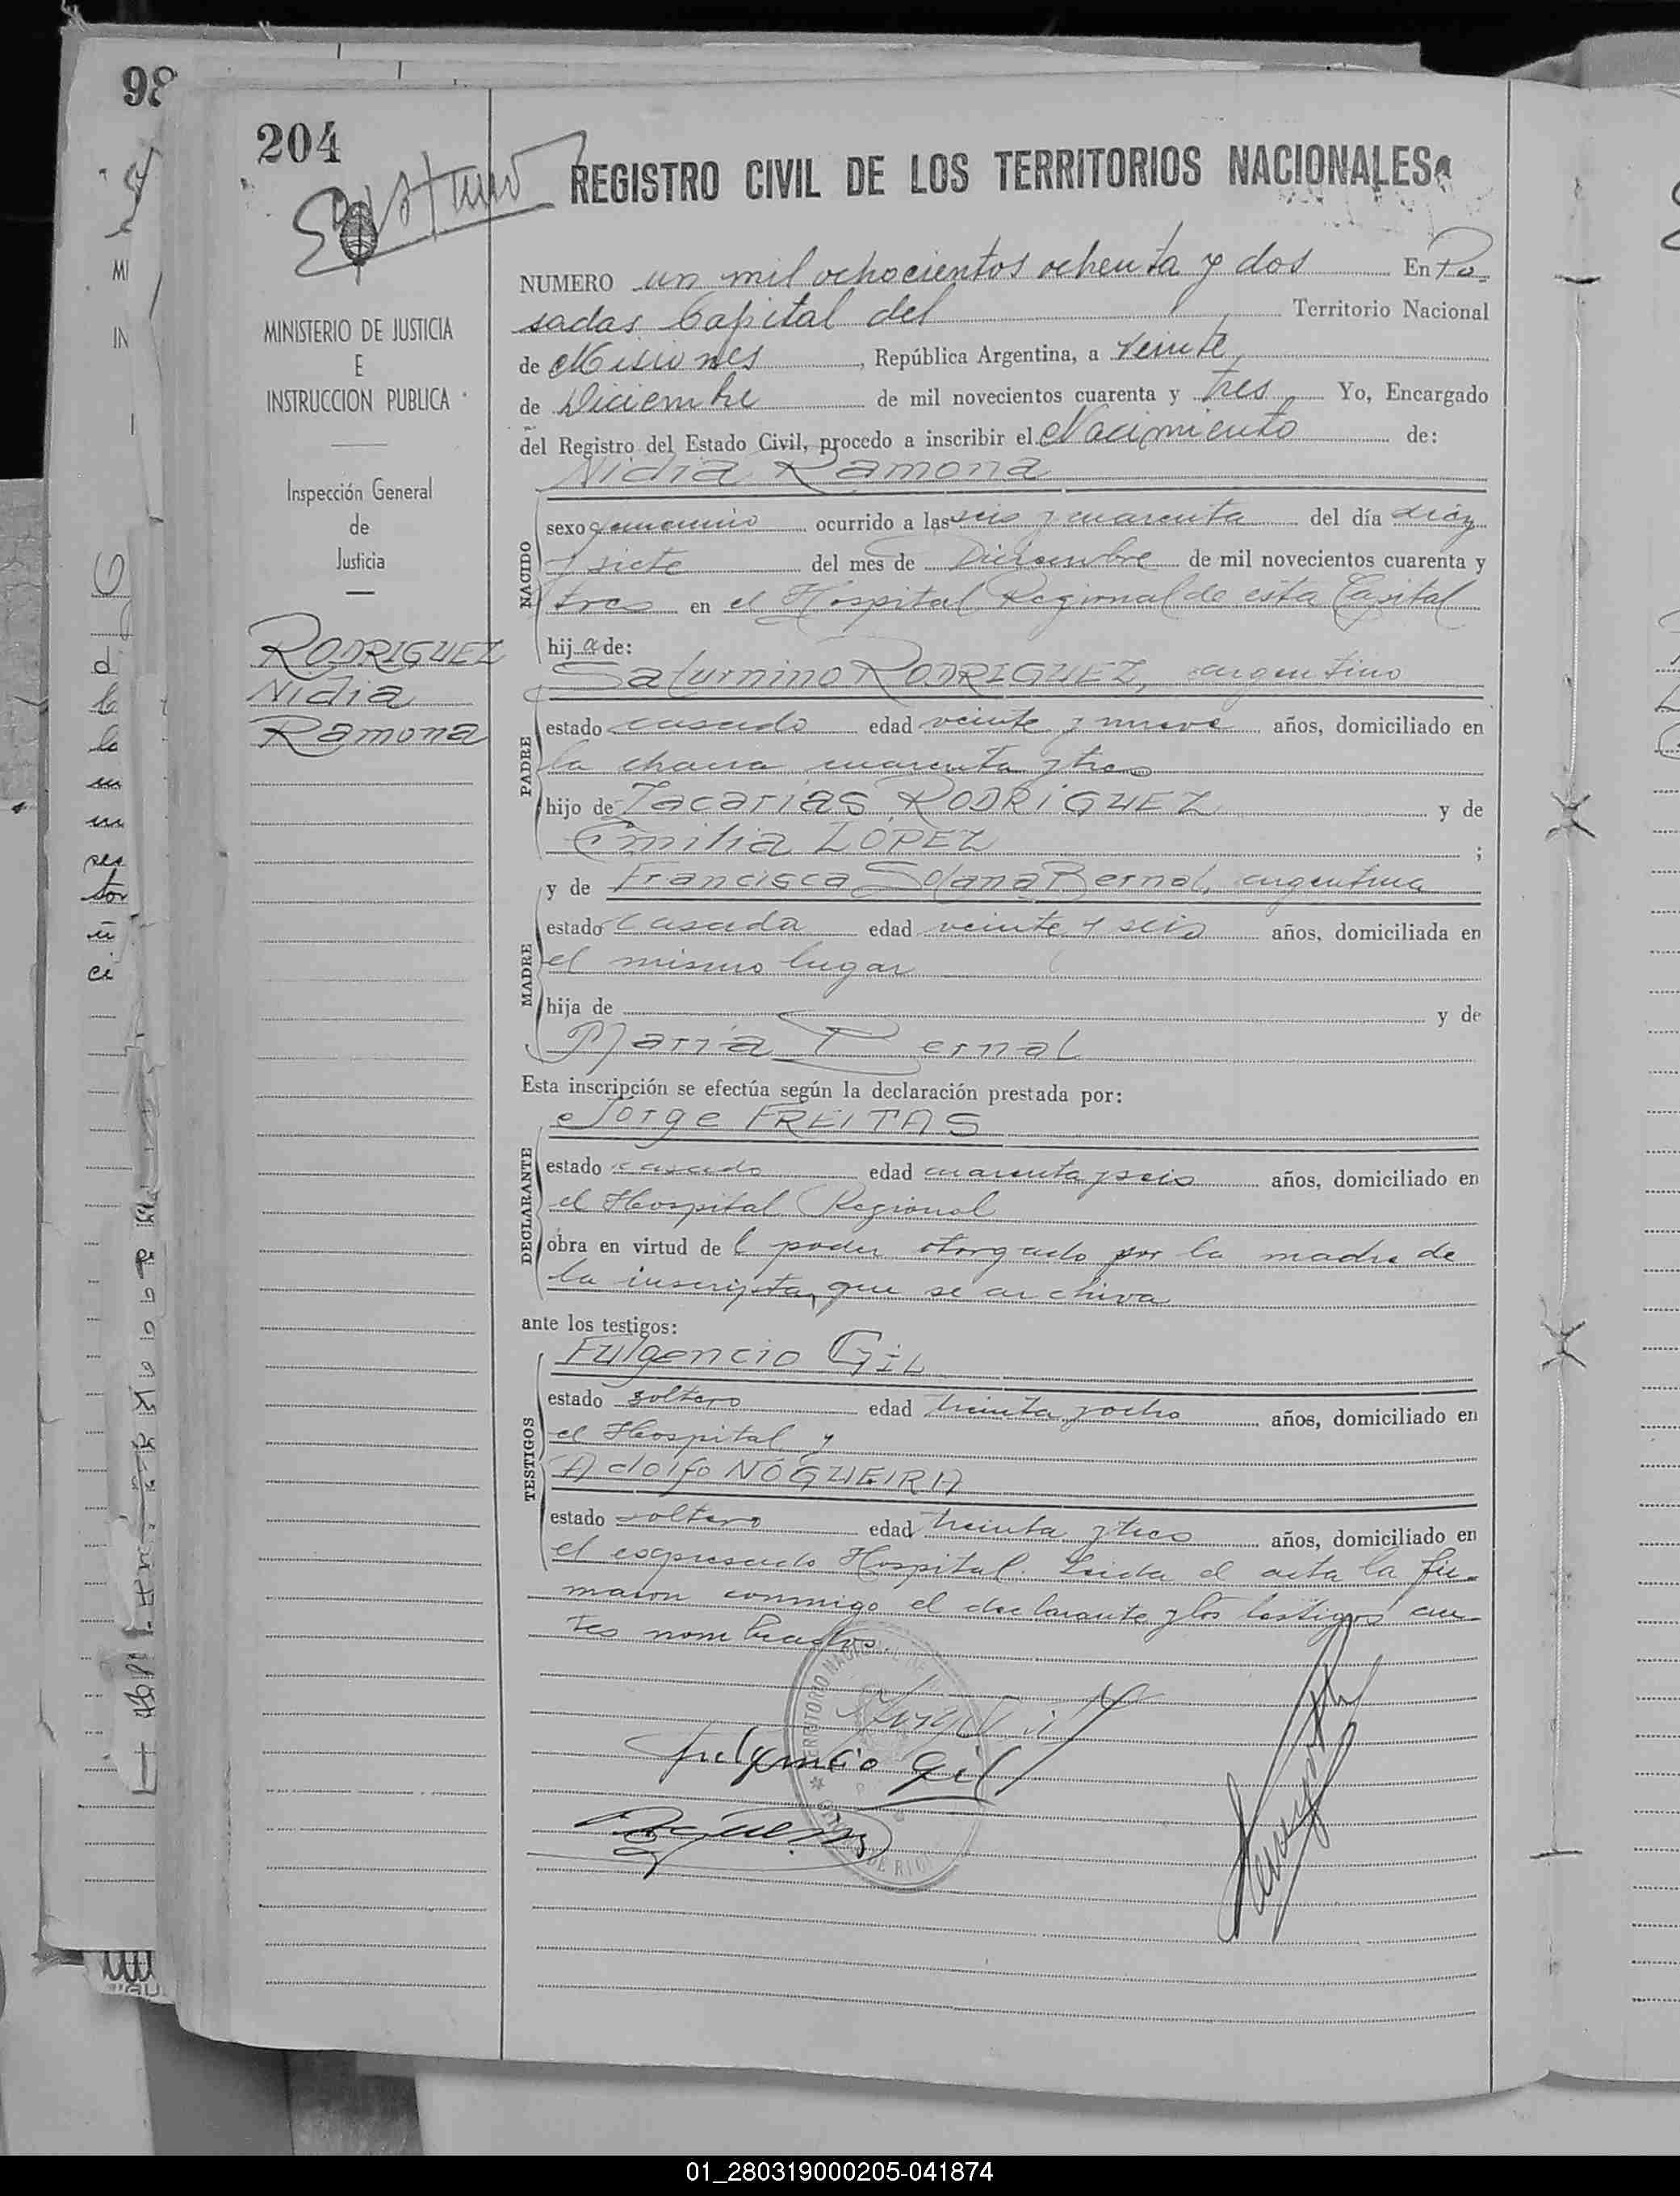 98
204
REGISTRO CIVIL DE LOS TERRITORIOS NACIONALES
NUMERO un mil ochocientos ochenta y dos En Po-
sadas Capital del Territorio Nacional
de Misiones, República Argentina, a veinte
de Diciembre de mil novecientos cuarenta y tres Yo, Encargado
del Registro del Estado Civil, procedo a inscribir el Nacimiento de:
Nidia Ramona
NACIDO
sexo femenino ocurrido a las seis y cuarenta del día diez
y siete del mes de Diciembre de mil novecientos cuarenta y
tres en el Hospital Regional de esta Capital
hij a de:
Saturnino RODRIGUEZ, argentino
PADRE
estado casado edad veinte y nueve años, domiciliado en
la chacra cuarenta y tres
hijo de Zacarías RODRIGUEZ y de
Emilia LOPEZ ;
y de Francisca Solana Bernal, argentina
MADRE
estado casada edad veinte y seis años, domiciliada en
el mismo lugar
hija de y de
María Bernal
Esta inscripción se efectúa según la declaración prestada por:
Jorge FREITAS
DECLARANTE
estado casado edad cuarenta y seis años, domiciliado en
el Hospital Regional
obra en virtud de l poder otorgado por la madre de
la inscripta, que se archiva
ante los testigos:
Fulgencio GIL
TESTIGOS
estado soltero edad treinta y ocho años, domiciliado en
el Hospital y
Adolfo NOGUEIRA
estado soltero edad treinta y tres años, domiciliado en
el expresado Hospital. Leida el acta la fir-
maron conmigo el declarante y los testigos an-
tes nombrados.
Fulgencio Gil
MINISTERIO DE JUSTICIA
E
INSTRUCCION PUBLICA
Inspección General
de
Justicia
RODRIGUEZ
Nidia
Ramona
01_280319000205-041874